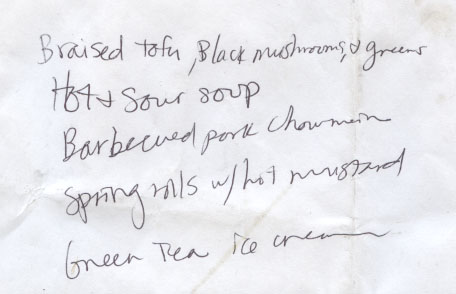 Braised tofu, Black mushrooms, & greens
Hot & Sour soup
Barbecued pork Chowmein
Spring rolls w/hot mustard
Green Tea ice cream